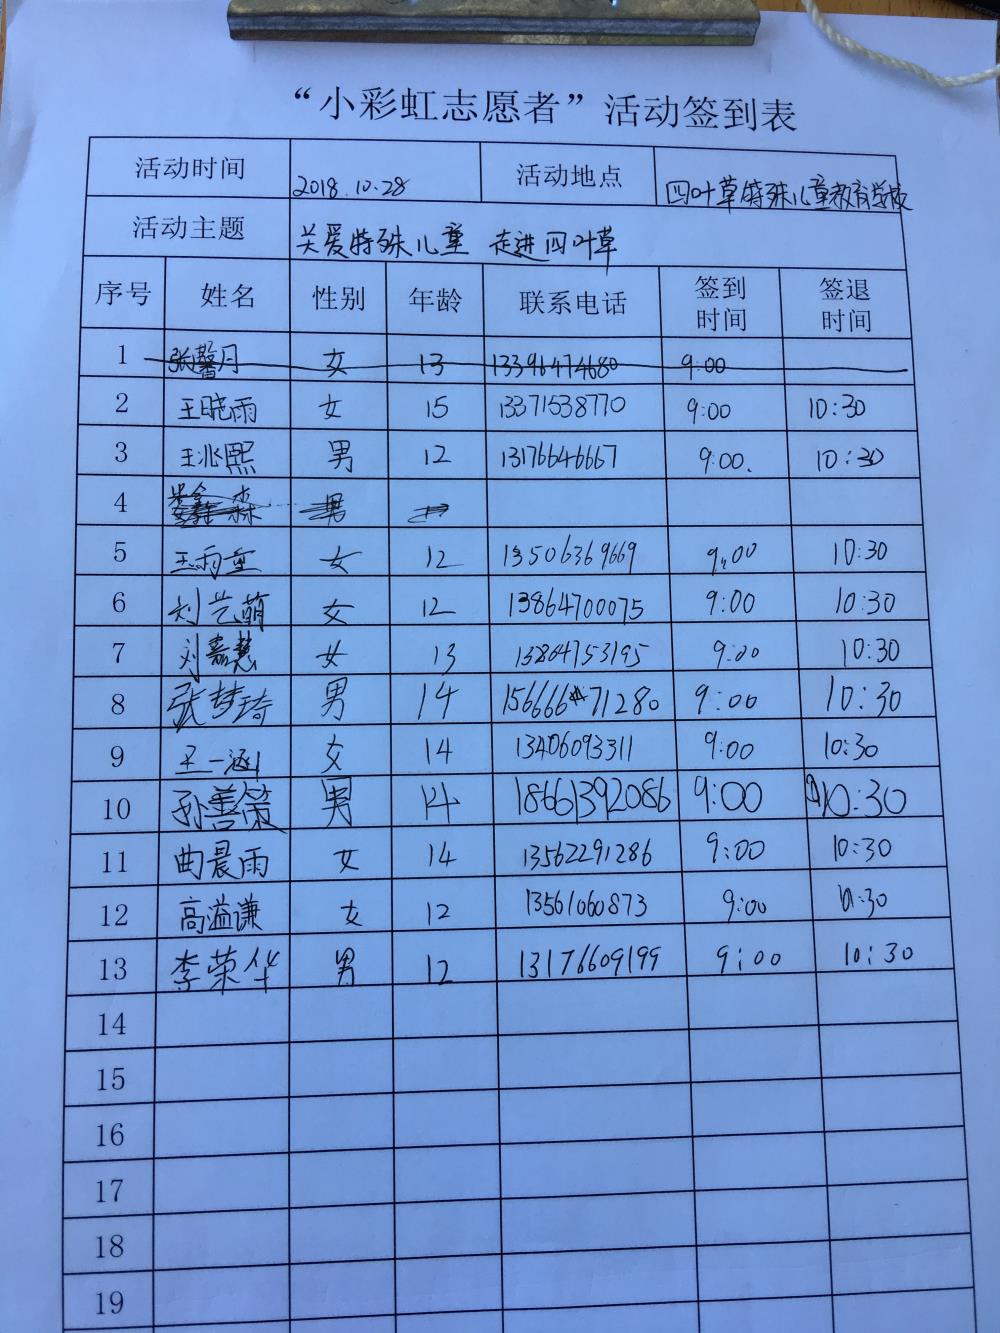 “小彩虹志愿者”活动签到表
活动时间 2018.10.28 活动地点 四叶草特殊儿童教育学校
活动主题 关爱特殊儿童 走进四叶草
序号 姓名 性别 年龄 联系电话 签到时间 签退时间
1 张馨月 女 13 13396474680 9:00
2 王晓雨 女 15 13371538770 9:00 10:30
3 王兆熙 男 12 13176646667 9:00. 10:30
4 森 男
5 王雨童 女 12 13506369669 9:00 10:30
6 刘艺萌 女 12 13864700075 9:00 10:30
7 刘嘉慧 女 13 13864753195 9:00 10:30
8 张梦琦 男 14 15666671280 9:00 10:30
9 王一涵 女 14 13406093311 9:00 10:30
10 孙善策 男 14 18661392086 9:00 10:30
11 曲晨雨 女 14 13562291286 9:00 10:30
12 高溢谦 女 12 13561060873 9:00 10:30
13 李荣华 男 12 13176609199 9:00 10:30
14
15
16
17
18
19